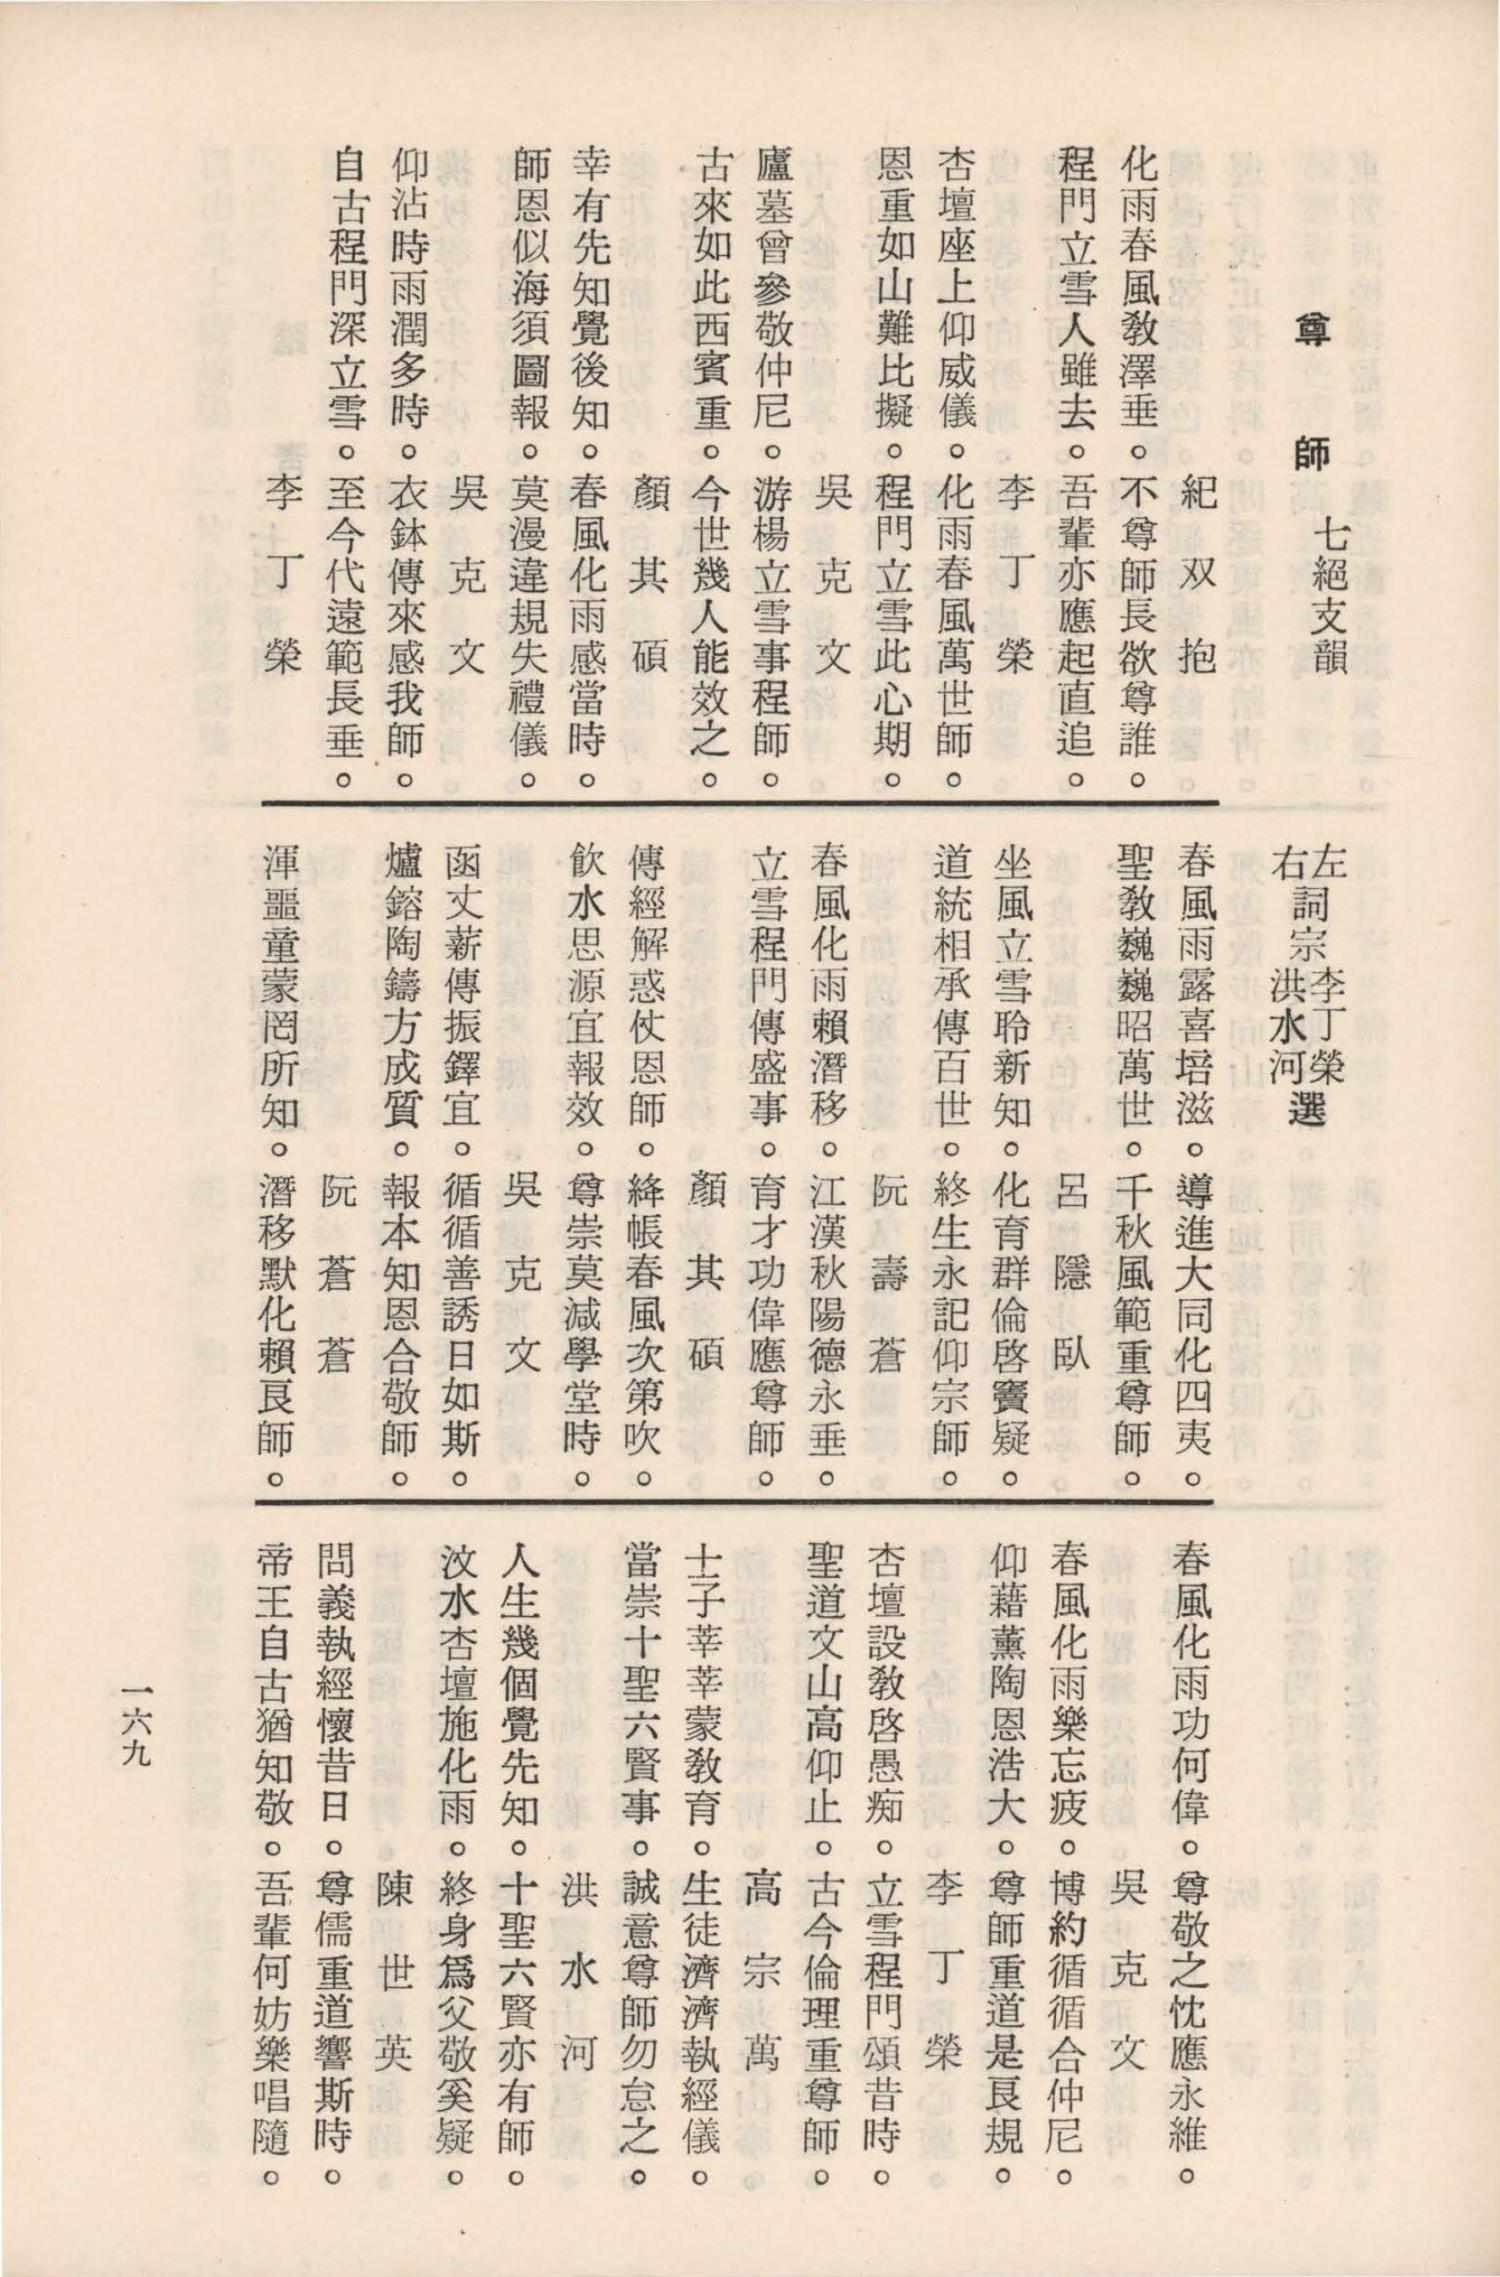 尊師 七絕支韻
左右詞宗李丁榮洪水河選
紀双抱
化雨春風敎澤垂。不尊師長欲尊誰。
程門立雪人雖去。吾輩亦應起直追。
李丁榮
杏壇座上仰威儀。化雨春風萬世師。
恩重如山難比擬。程門立雪此心期。
吳克文
廬墓曾參敬仲尼。游楊立雪事程師。
古來如此西賓重。今世幾人能效之。
顏其碩
幸有先知覺後知。春風化雨感當時。
師恩似海須圖報。莫漫違規失禮儀。
吳克文
仰沾時雨潤多時。衣鉢傳來感我師。
自古程門深立雪。至今代遠範長垂。
李丁榮
春風雨露喜培滋。導進大同化四夷。
聖敎巍巍昭萬世。千秋風範重尊師。
呂隱臥
坐風立雪聆新知。化育群倫啓竇疑。
道統相承傳百世。終生永記仰宗師。
阮壽蒼
春風化雨賴潛移。江漢秋陽德永垂。
立雪程門傳盛事。育才功偉應尊師。
顏其碩
傳經解惑仗恩師。絳帳春風次第吹。
飮水思源宜報效。尊崇莫減學堂時。
吳克文
函丈薪傳振鐸宜。循循善誘日如斯。
爐鎔陶鑄方成質。報本知恩合敬師。
阮蒼蒼
渾噩童蒙罔所知。潛移默化賴良師。
春風化雨功何偉。尊敬之忱應永維。
吳克文
春風化雨樂忘疲。博約循循合仲尼。
仰藉薰陶恩浩大。尊師重道是良規。
李丁榮
杏壇設敎啓愚痴。立雪程門頌昔時。
聖道文山高仰止。古今倫理重尊師。
高宗萬
士子莘莘蒙敎育。生徒濟濟執經儀。
當崇十聖六賢事。誠意尊師勿怠之。
洪水河
人生幾個覺先知。十聖六賢亦有師。
汶水杏壇施化雨。終身爲父敬奚疑。
陳世英
問義執經懷昔日。尊儒重道響斯時。
帝王自古猶知敬。吾輩何妨樂唱隨。
一六九